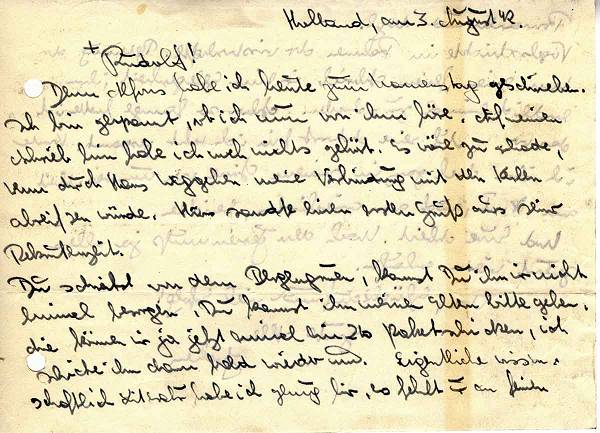 Helband, am 3. August 42.
+
Rudolf!
Dem Alfons habe ich heute zum Namenstag geschrieben.
Ich bin gespannt, ob ich nun von ihm höre. Auf einen
habe ich noch nichts gehört. Es wäre zu schade,
wenn durch Hans Weggehen meine Verbindung mit den Kerlen
abreißen würde. Hans sandte einen ersten Gruß aus seiner
Rekrutenzeit.
Du schriebst von dem, kannst Du ihn mir nicht
einmal besorgen. Du kannst ihn meine Eltern bitte geben,
die können ja jetzt einmal ein schicken, ich
schicke ihn dann bald wieder um. Eigentliche wissen-
schaftlich Literatur habe ich genug hier, es fehlt an